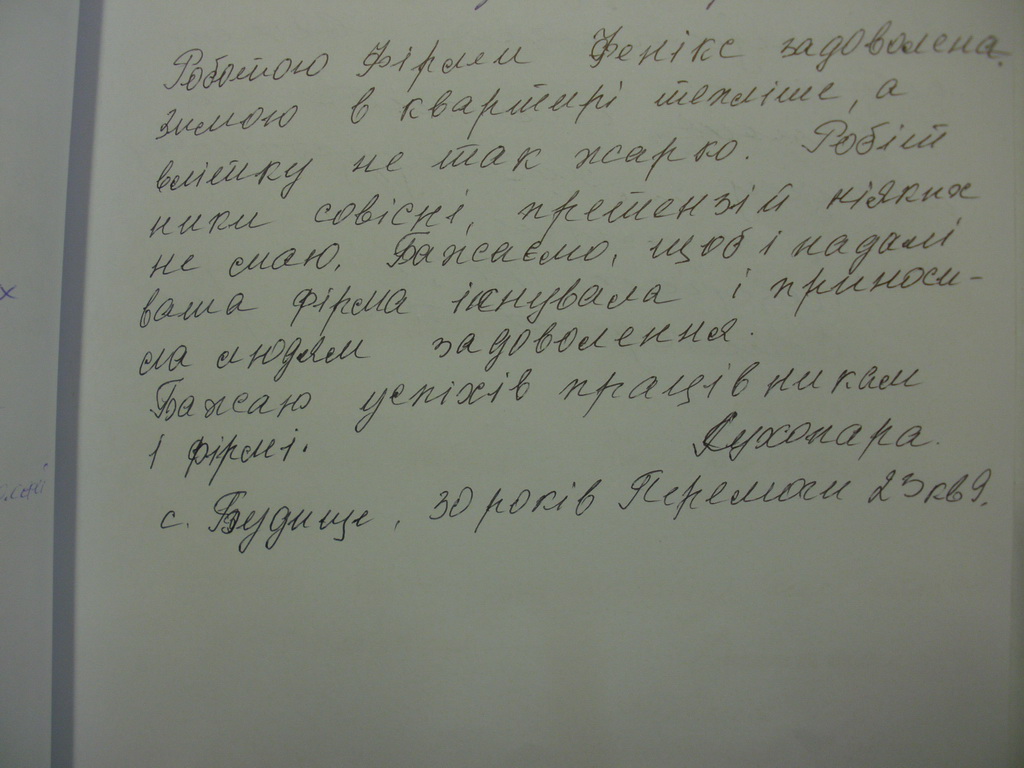 Роботою Фірми Фенікс задоволена.
Зимою в квартирі тепліше, а
влітку не так жарко. Робіт
ники совісні, претензій ніяких
не маю. Бажаємо, щоб і надалі
ваша фірма існувала і приноси-
ла людям задоволення.
Бажаю успіхів працівникам
і фірмі. Сухопара.
с. Будище, 30 років Перемоги 23 кв 9.